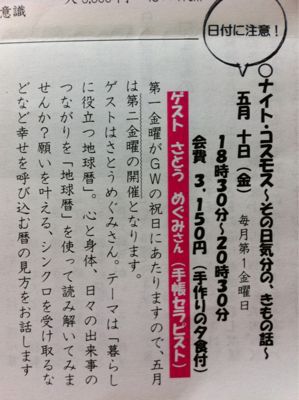 意識
日付に注意!
○ナイト・コスモス〜その日気分の、きもの話〜
五月 十日(金) 毎月第1金曜日
18時30分〜20時30分
会費 3,150円(手作りの夕食付)
ゲスト さとう めぐみさん(手帳セラピスト)
第一金曜がGWの祝日にあたりますので、五月
は第二金曜の開催となります。
ゲストはさとうめぐみさん。テーマは「暮らし
に役立つ地球暦」。心と身体、日々の出来事の
つながりを「地球暦」を使って読み解いてみま
せんか?願いを叶える、シンクロを受け取るな
どなど幸せを呼び込む暦の見方をお話します